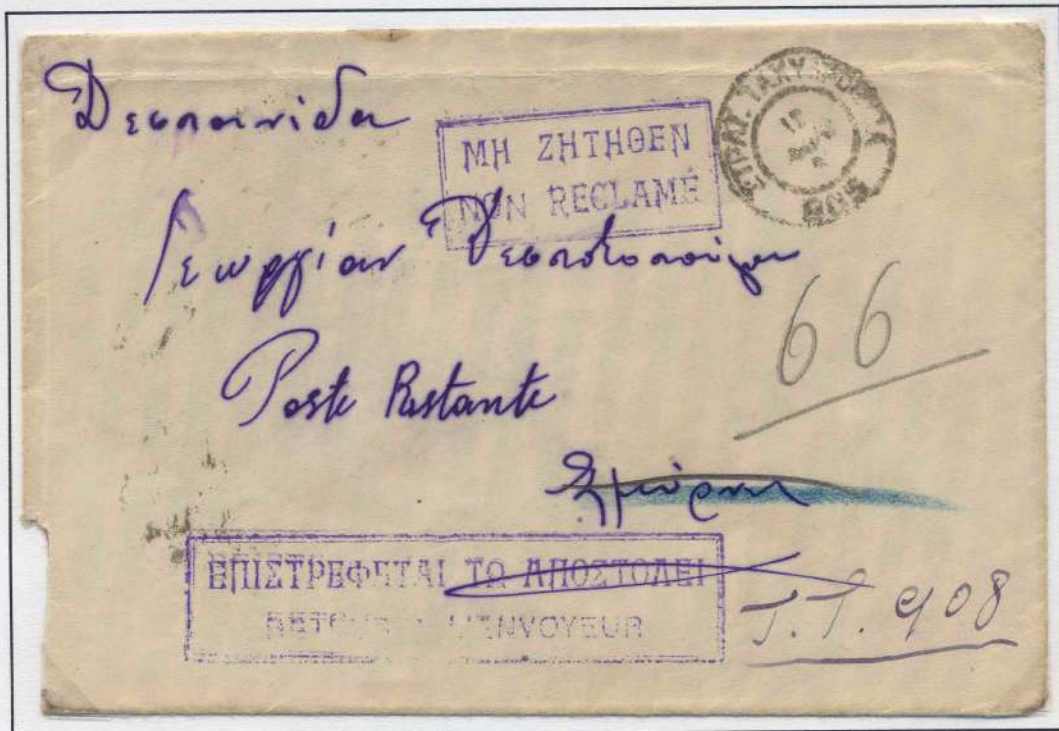 Δεσποινίδα
ΜΗ ΖΗΤΗΘΕΝ
NON RECLAMÉ
ΣΤΡΑΤ. ΤΑΧΥΔΡΟΜ.
908
Γεωργίαν Δεσποτοπούλου
66
Poste Restante
Σμύρνην
ΕΠΙΣΤΡΕΦΕΤΑΙ ΤΩ ΑΠΟΣΤΟΛΕΙ
RETOUR A L'ENVOYEUR
T.T. 908